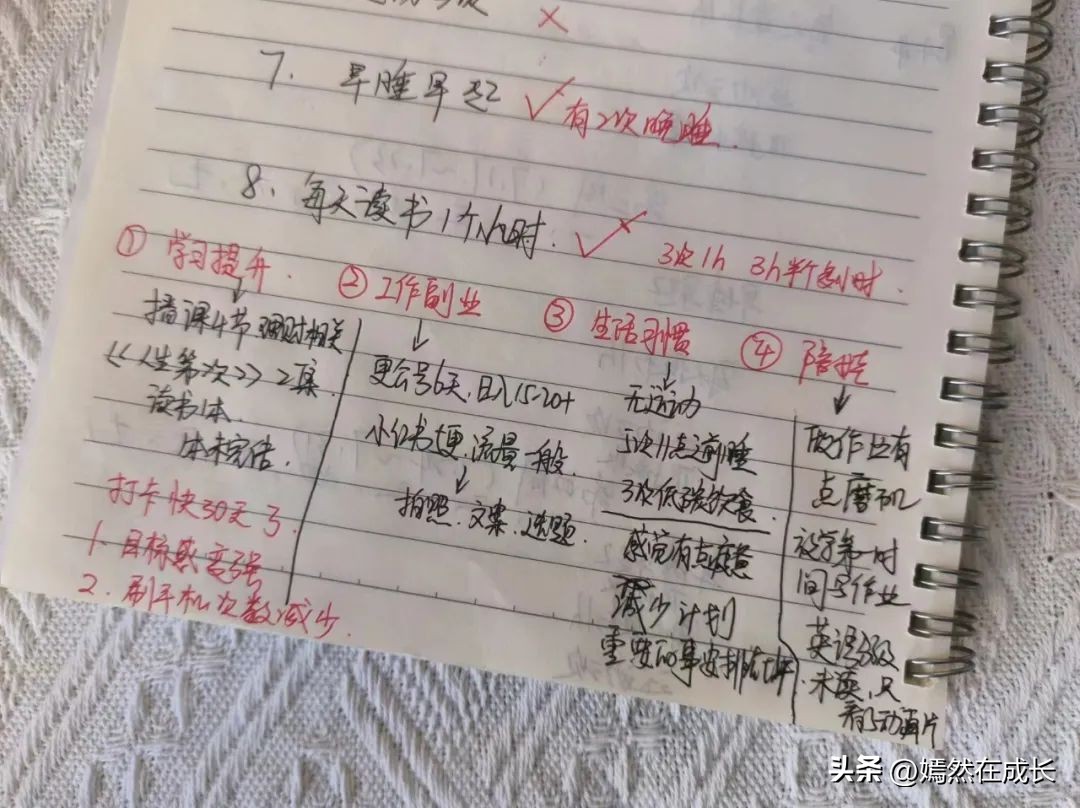 7. 早睡早起 有2次晚睡.
8、每天读书1个小时. 3次1h 3h半个多小时.
① 学习提升.
播课4节 理财相关
《人生第一次》2集
读书1本
体未完结.
打卡快30天了
1. 目标感变强
2. 刷手机次数减少.
② 工作副业
更公号6天,日入15-20+
小红书1更.流量一般.
拍照.文案.选题.
③ 生活习惯
无运动
5次11点之前睡
3次低碳饮食.
感觉有点疲惫
减少计划
重要的事安排在上午.
④ 陪娃
做作业有
点磨叽
放学第一时
间写作业
英语分级
未读,只
看了动画片
头条 @嫣然在成长